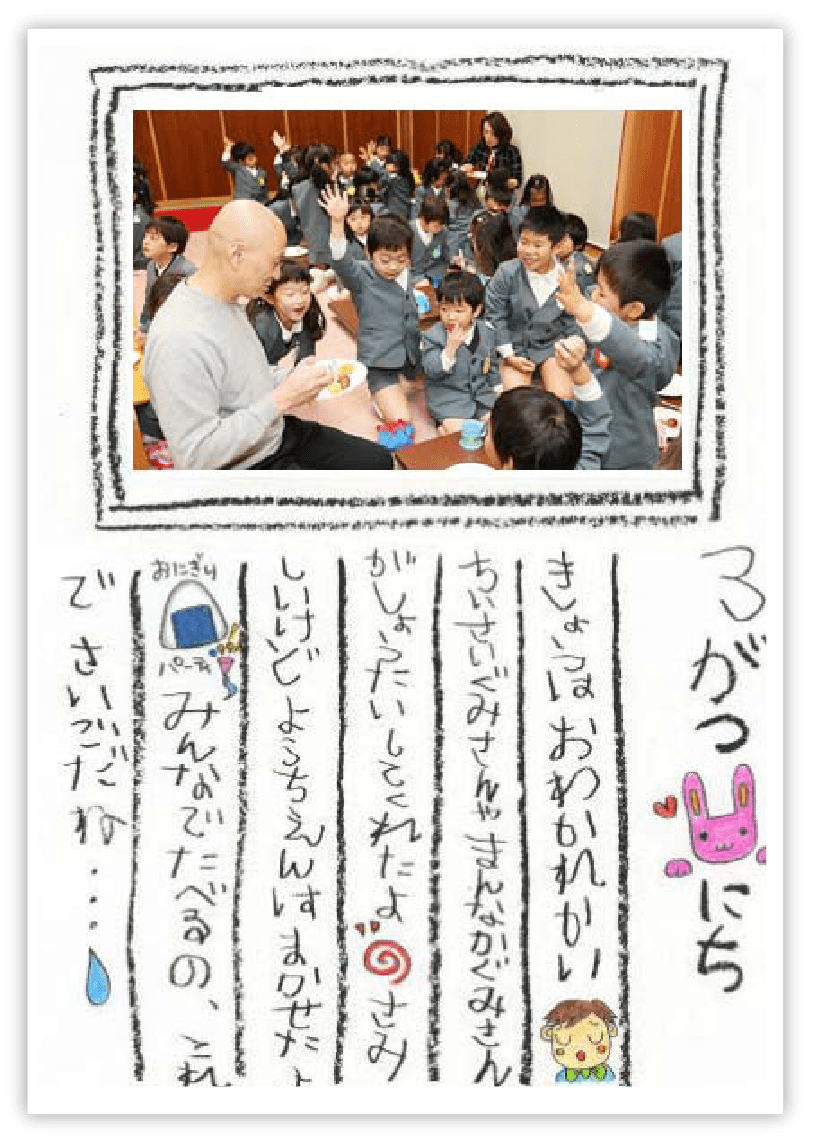 3がつ にち
きょうはおわかれかい
ちいさいぐみさんやまんなかぐみさん
がしょうたいしてくれたよ さみ
しいけどようちえんはまかせたよ
おにぎり パーティ みんなでたべるの、これ
でさいごだね・・・